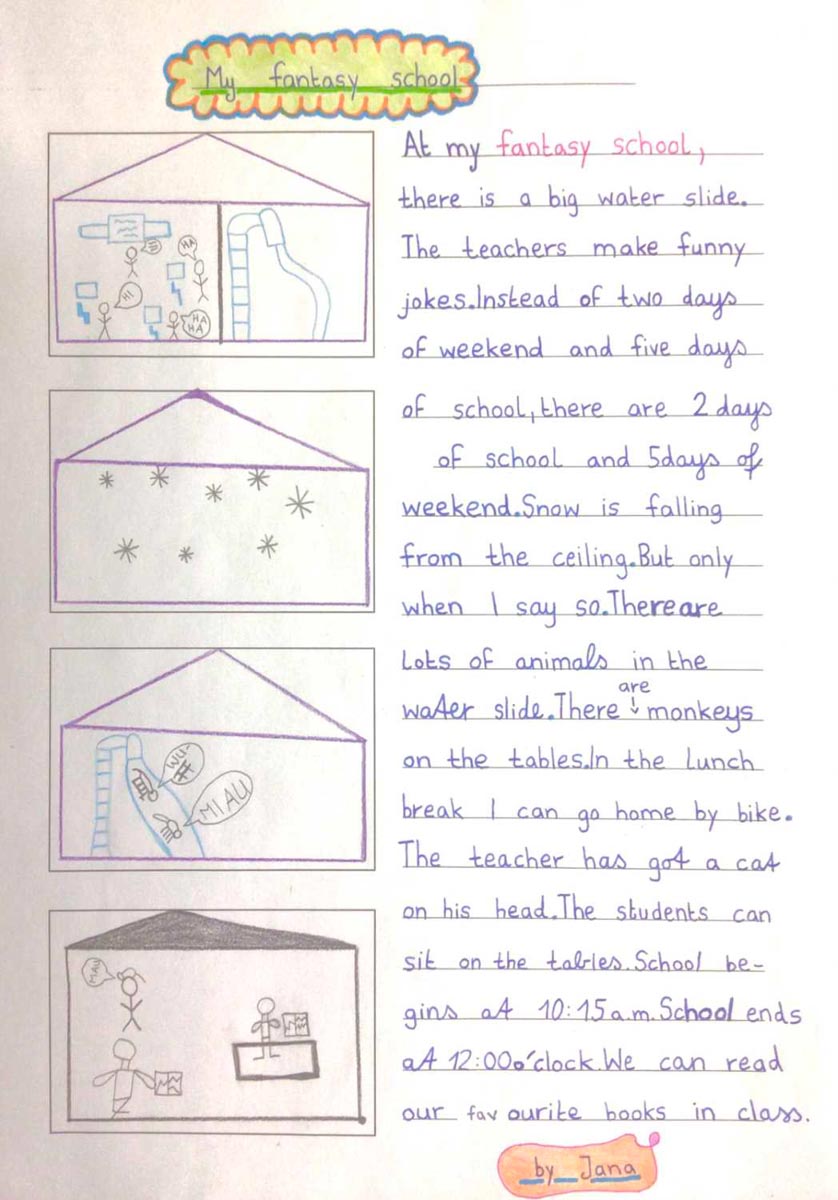 My fantasy school
At my fantasy school,
there is a big water slide.
The teachers make funny
jokes.Instead of two days
of weekend and five days
of school, there are 2 days
of school and 5days of
weekend.Snow is falling
from the ceiling.But only
when I say so.There are
Lots of animals in the
water slide.There are monkeys
on the tables.In the Lunch
break I can go home by bike.
The teacher has got a cat
on his head.The students can
sit on the tables.School be-
gins at 10:15 a.m.School ends
at 12:00o'clock.We can read
our favourite books in class.
by Jana
HA
HI
HA
HA
MIAU
MAU